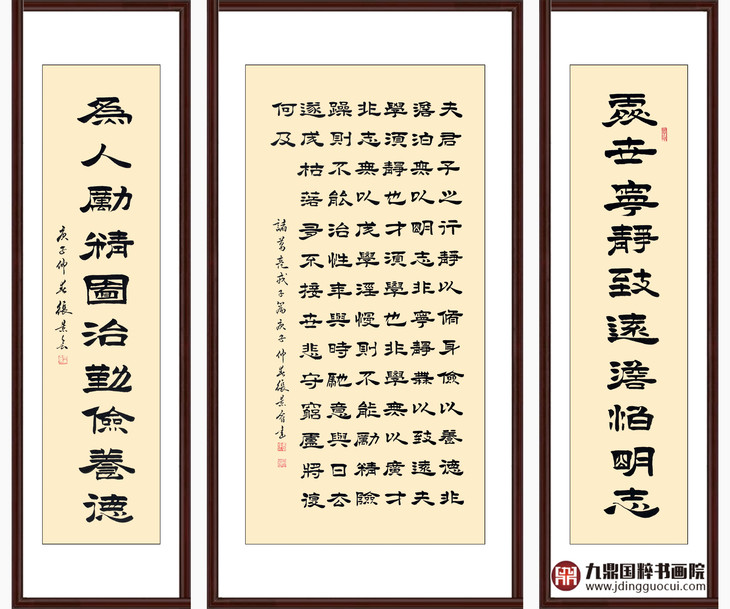 處世寧靜致遠澹泊明志
夫君子之行靜以脩身儉以養德非
澹泊無以明志非寧靜無以致遠夫
學須靜也才須學也非學無以廣才
非志無以成學淫慢則不能勵精險
躁則不能治性年與時馳意與日去
遂成枯落多不接世悲守窮廬將復
何及
諸葛亮戒子篇庚子仲春張景書
為人勵精圖治勤儉養德
庚子仲春張景
九鼎国粹书画院
www.jdingguocui.com